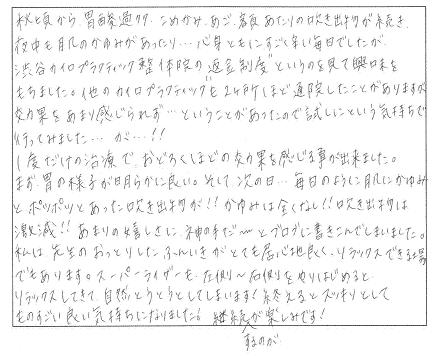 秋頃から、胃酸過多、こめかみ、あご、額あたりの吹き出物が続き、
夜中も肌のかゆみがあったり…心身ともにすごく辛い毎日でしたが、
渋谷カイロプラクティック整体院の"返金制度"というのを見て興味を
もちました。(他のカイロプラクティックも2ヶ所ほど通院したことがありますが
効果をあまり感じられず…ということがあったので試しにという気持ちで
行ってみました…が…!!
1度だけの治療で、おどろくほどの効果を感じる事が出来ました。
まず、胃の様子が明らかに良い。そして次の日…毎日のように肌にかゆみ
とポツポツとあった吹き出物が!!かゆみは全くなし!!吹き出物は
激減!!あまりの嬉しさに、神の手だ〜とブログに書きこんでしまいました。
私は、先生のおっとりしたふんいきがとても居心地良く、リラックスできる場
でもあります。スーパーライザーも左側〜右側をやりはじめると
リラックスしてきて自然とうとうとしてしまいます!終えるとスッキリとして
ものすごい良い気持ちになりました。継続するのが楽しみです!